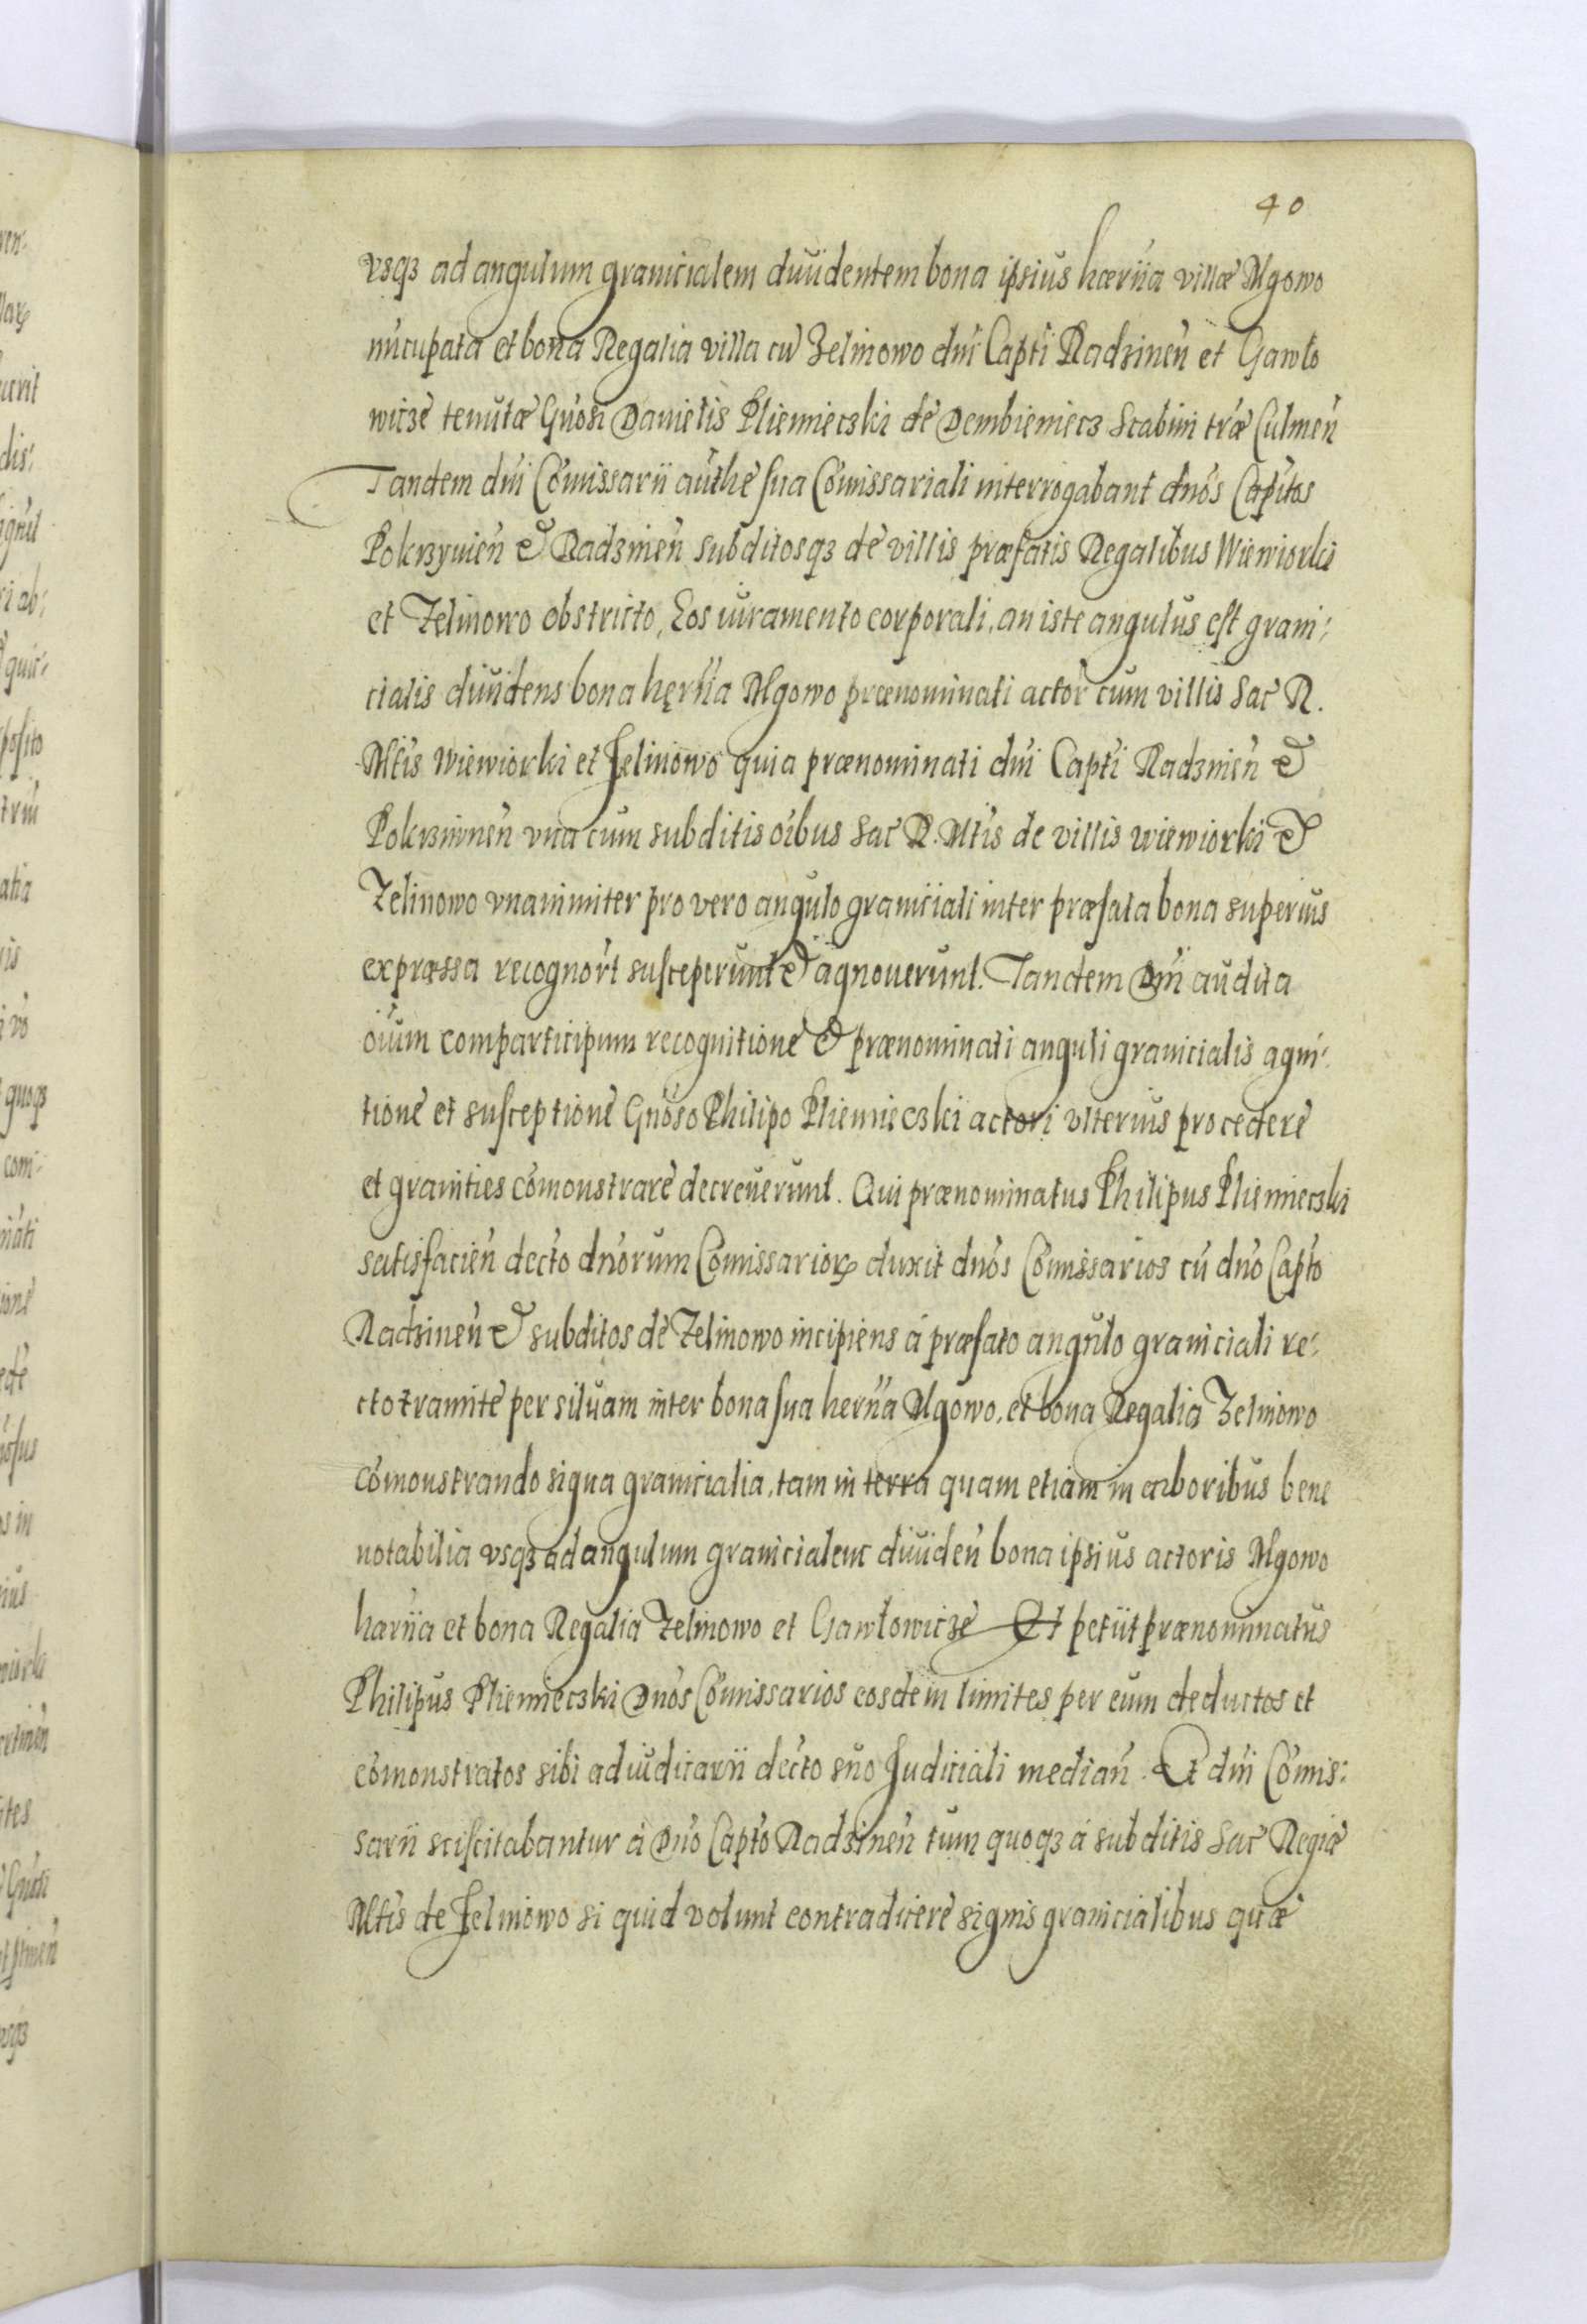 40
vsqз ad angulum granicialem diuidentem bona ipsius hæriia villæ Mgowo
nūcupata et bona Regalia villa cū Zelinowo dn̄i Capt̄i Radzineń et Gawło
wicze tenutæ Gn̄osi Danielis Plieniecski de Dembieniecz Scabini tr̄æ Culmeń
Tandem dn̄i Com̄issarii auth̄e sua Com̄issariali interrogabant dn̄os Capit̄os
Pokrzywień & Radzineń subditosqз de villis præfatis Regalibus Wiewiorki
et Zelinowo obstricto, Eos iuramento corporali, an iste angulus est grani:
cialis diuidens bona hęriia Mgowo prænominati actor̄ cum villis Sac̄ R.
Mt̄is Wiewiorki et Zelinowo quia prænominati dn̄i Capt̄i Radzineń &
Pokrznineń vna cum subditis oībus Sac̄ R. Mt̄is de villis wiewiorki &
Zelinowo vnanimiter pro vero angulo graniciali inter præfata bona superius
expræssa recogn̄ort susceperunt & agnouerunt. Tandem Dn̄i audita
oīum comparticipum recognitione & prænominati anguli granicialis agni:
tione et susceptione Gn̄oso Philipo Plieniecski actori vlterius procedere
et granities com̄onstrare decreuerunt. Qui prænominatus Philipus Plieniecski
satisfacień dec̄to dn̄orum Com̄issarioꝝ duxit dn̄os Com̄issarios cū dn̄o Capt̄o
Radzineń & subditos de Zelinowo incipiens á præfato angulo graniciali re:
cto tramite per siluam inter bona sua heriia Mgowo, et bona Regalia Zelinowo
com̄onstrando signa granicialia, tam in terra quam etiam in arboribus bene
notabilia vsqз ad angulum granicialem diuideń bona ipsius actoris Mgowo
hariia et bona Regalia Zelinowo et Gawłowicze Et petiit prænominatus
Philipus Plieniecski Dn̄os Com̄issarios eosdem limites per eum deductos et
com̄onstratos sibi adiudicarii dec̄to sn̄o Judiciali mediań. Et dn̄i Com̄is:
sarii sciscitabantur á Dn̄o Capt̄o Radzineń tum quoqз á subditis Sac̄ Regiæ
Mt̄is de Zelinowo si quid volunt contradicere signis granicialibus quæ